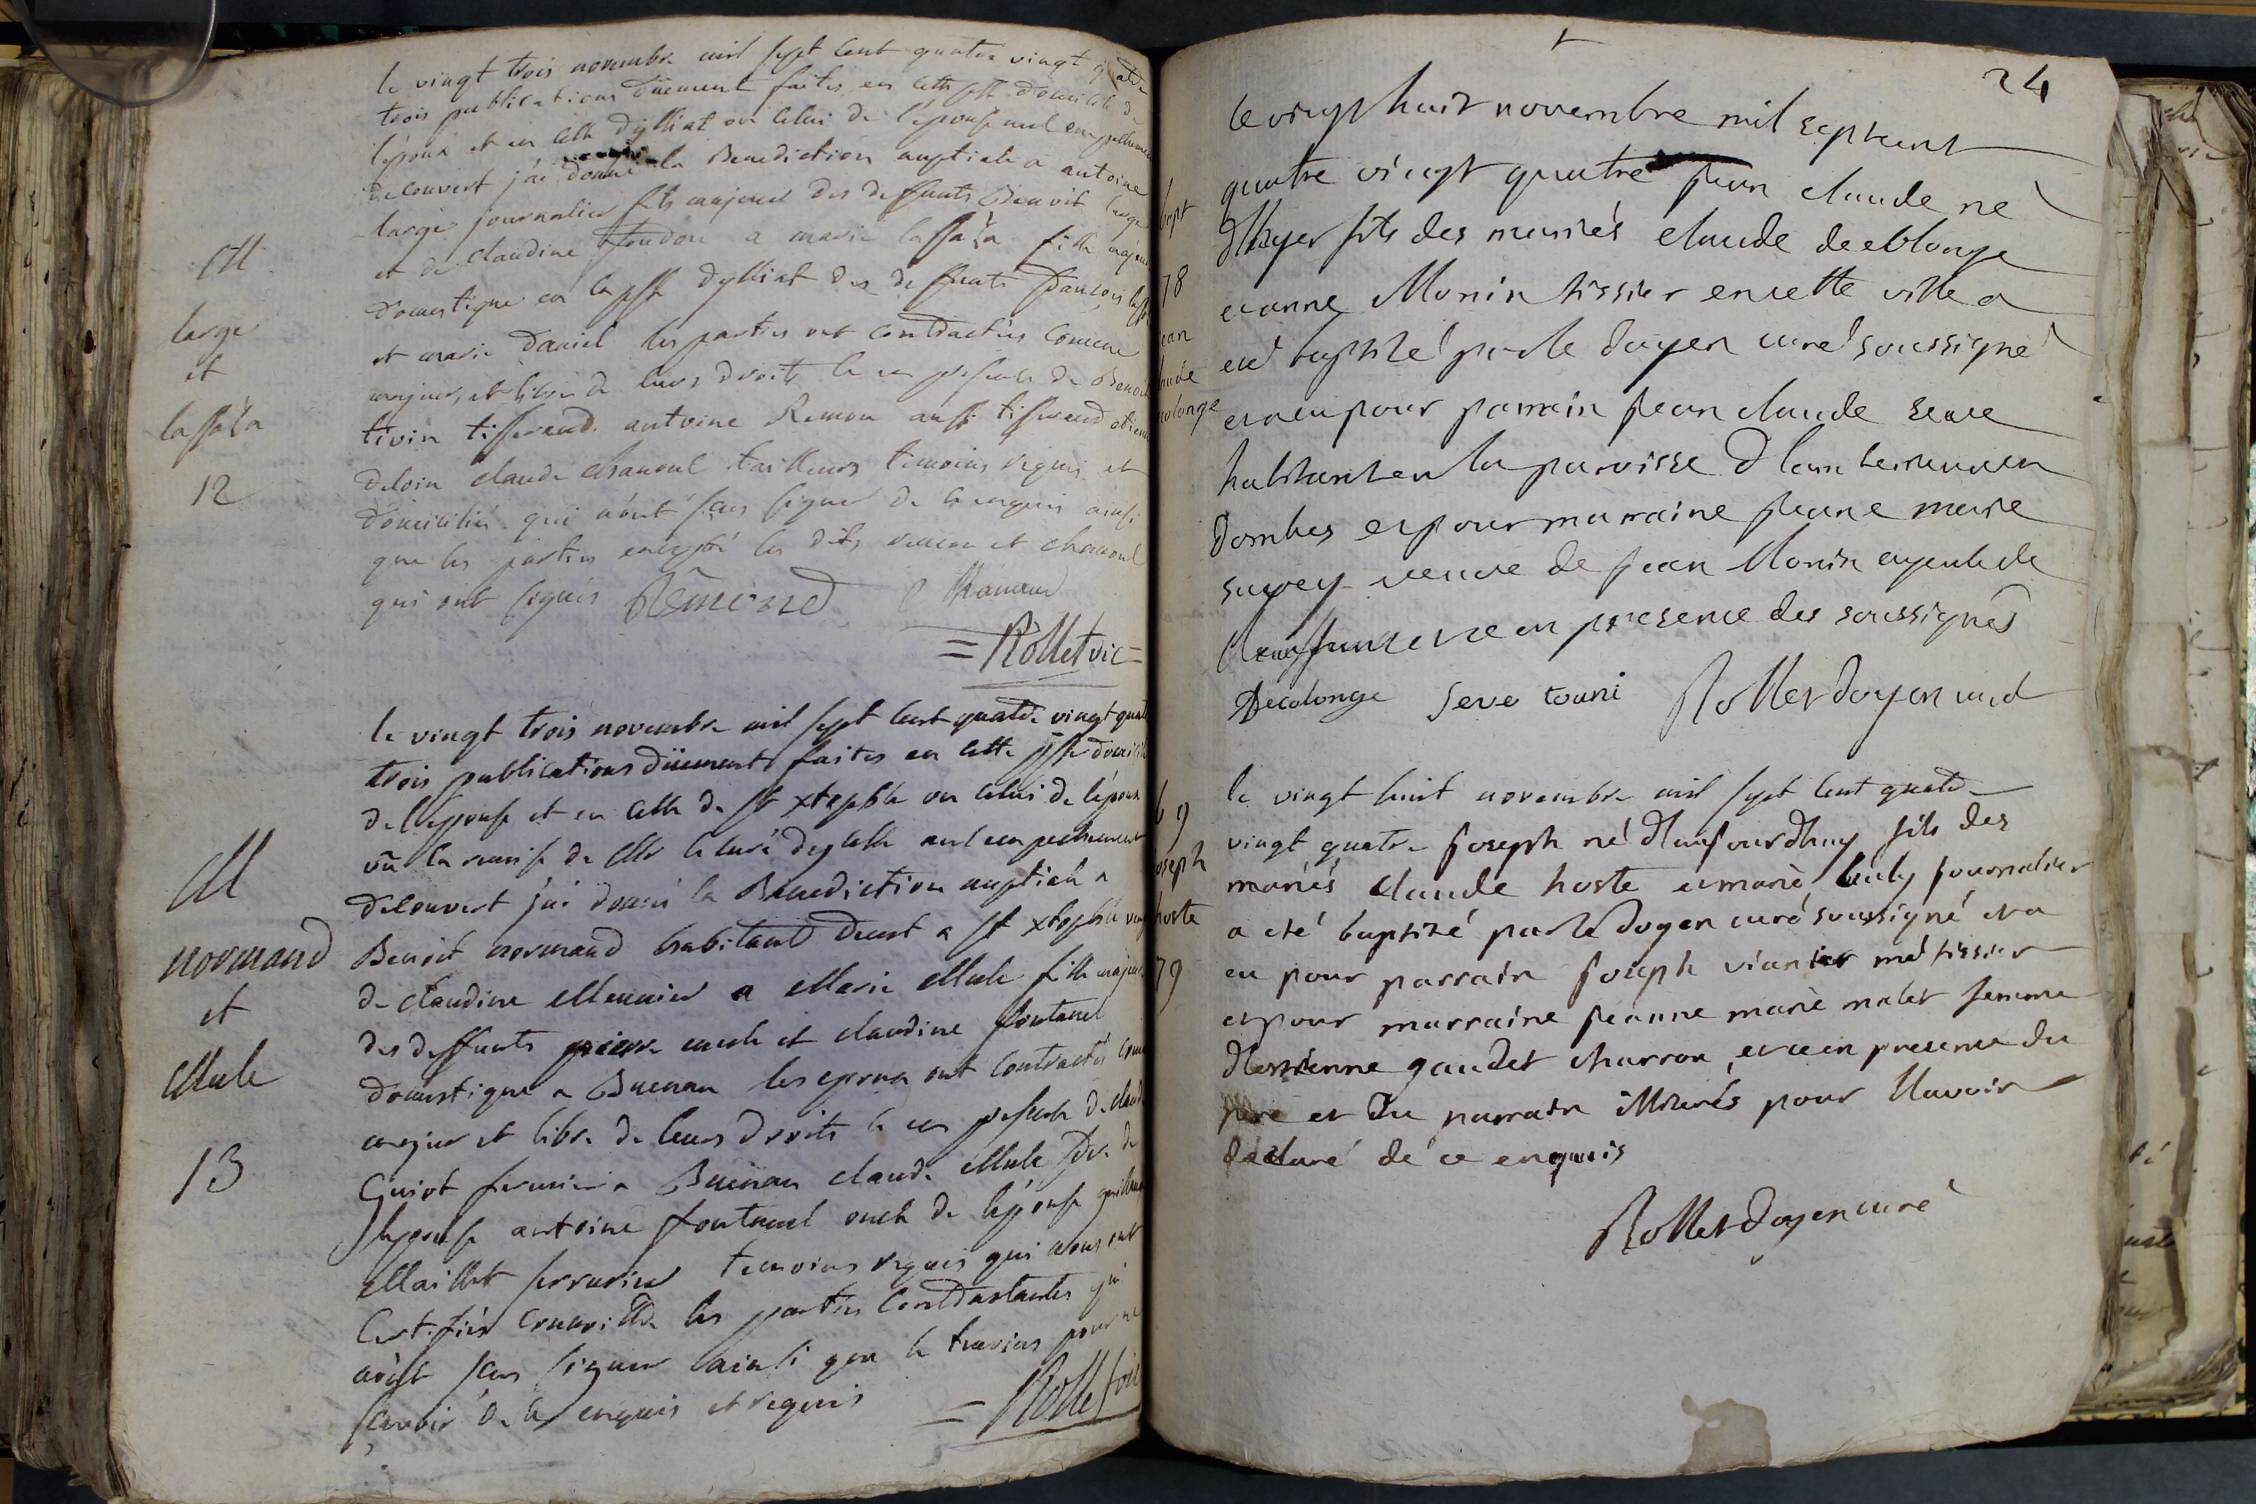 le vingt trois novembre mil sept cent quatre vingt quatre
trois publications düement faites en cette psse domicile de
l'époux et en celle d'ylliat ou celui de l'épouse nul empechement
decouvert j'ai donné la Benediction nuptiale a antoine
large journalier fils majeur des deffunts Benoit large
et de claudine a marie lassala fille majeure
domestique en la psse d'ylliat des deffunts
et marie Daniel les parties ont contractées comme
majeurs, et libre de leurs droits le en presence de Benoit
tivin tisserand antoine Remon aussi tisserand
deloin claude chanoul tailleurs temoins requis et
domiciliés qui n'ont sçus signer de ce enquis ainsi
que les parties excepté les dits remon et chanoul
qui ont signés Rémond
= Rollet vic =
M
large
et
lassala
12
le vingt trois novembre mil sept cent quatre vingt quatre
trois publications düement faites en cette psse domicile
de l'épouse et en celle de st xtophle ou celui de l'époux
vû la remise de Mr le curé nul empechement
decouvert j'ai donné la Benediction nuptiale a
Benoit normand habitant a st xtophle
de claudine Meunier a Marie Mule fille majeure
des deffunts pierre mule et claudine fontanel
domestique a Buenan les epoux ont contractés comme
majeur et libre de leurs droits le en presence de claude
Guiot fermier a Buenan claude Mule frere de
l'epouse antoine fontanel oncle de l'épouse
Maillet serrurier temoins requis qui nous ont
certifiés les parties contractantes qui
n'ont sçus signer ainsi que le temoins pour ne
sçavoir de ce enquis et requis
= Rollet vic
M
normand
et
Mule
13
24
bapt
78
jean
claude
decolonge
le vingt huit novembre mil sept cent
quatre vingt quatre jean claude né
d'hyer fils des mariés claude decolonge
et anne Monin tissier en cette ville a
eté baptisé par le doyen curé soussigné
et a eu pour parrain jean claude seve
habitant en la paroisse
Dombes et pour marraine jeane marie
veuve de jean Monin ayeule de
l'enfant et ce en presence des soussignés
Decolonge Seve Rollet doyen curé
b 9
joseph
hoste
79
le vingt huit novembre mil sept cent quatre
vingt quatre joseph né d'aujourdhuy fils des
mariés claude hoste et marie journalier
a eté baptisé par le doyen curé soussigné et a
eu pour parrain joseph tissier
et pour marraine jeanne marie femme
d'estienne gaudet charron, et ce en presence du
pere et du parrain illiterés pour l'avoir
déclaré de ce enquis
Rollet doyen curé